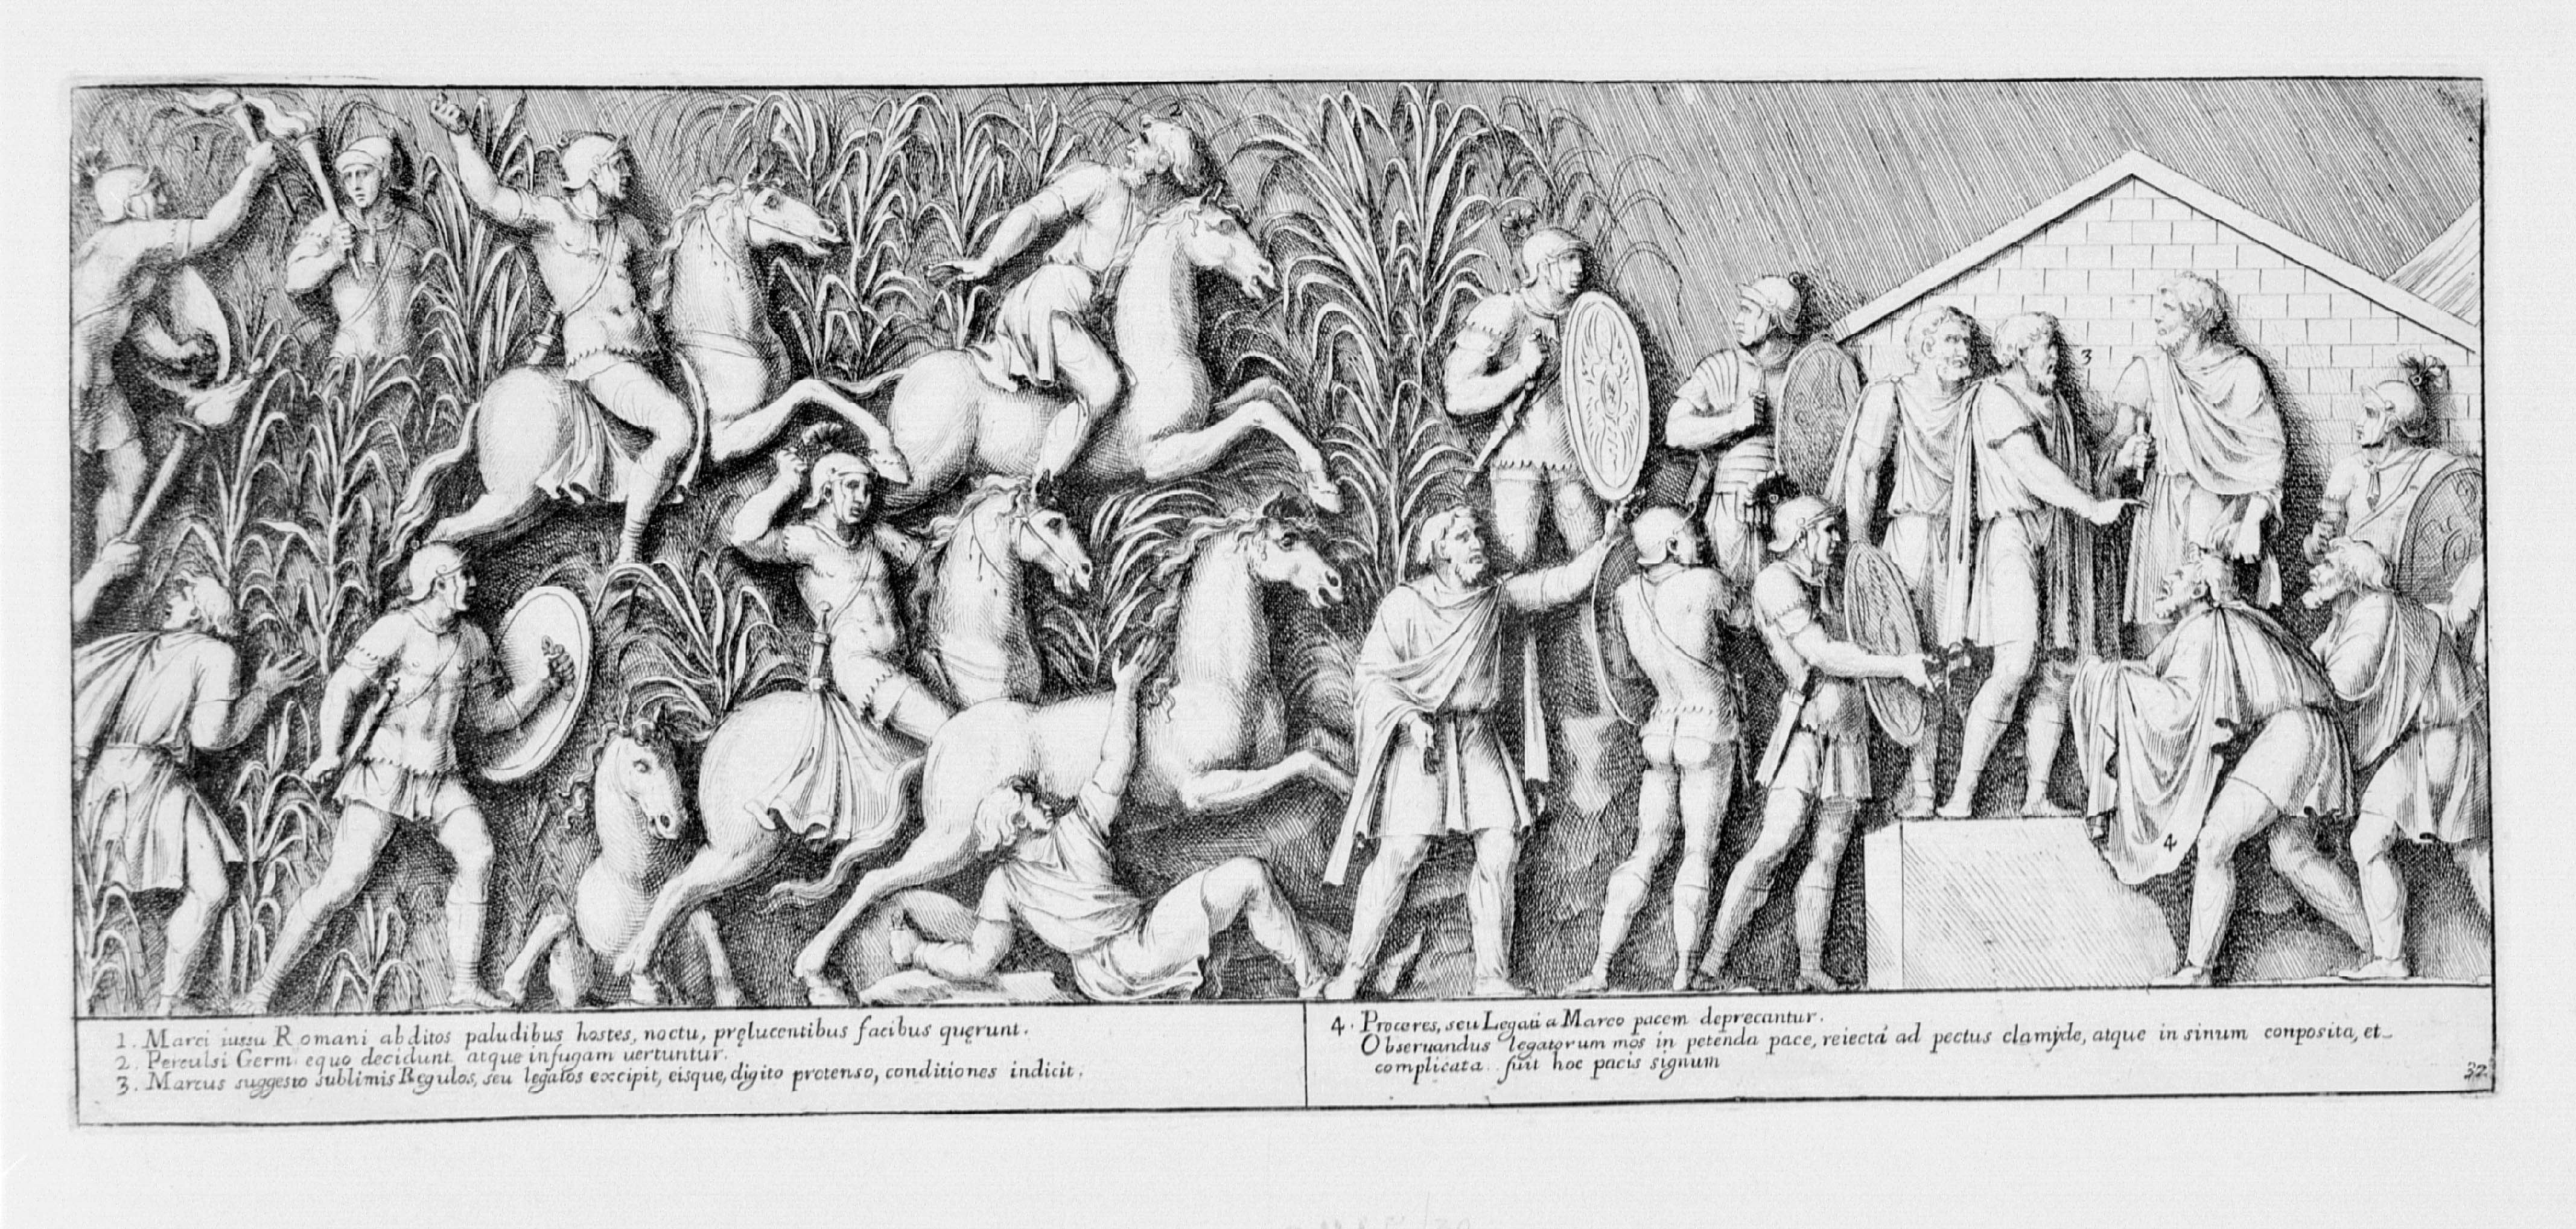 1
2
3
4
1. Marci iussu Romani abditos paludibus hostes, noctu, pręlucentibus facibus quęrunt.
2. Perculsi Germ: equo decidunt atque in fugam uertuntur.
3. Marcus suggesto sublimis Regulos, seu legatos excipit, eisque, digito protenso, conditiones indicit.
4. Proceres, seu Legati a Marco pacem deprecantur.
Obseruandus legatorum mos in petenda pace, reiectá ad pectus clamyde, atque in sinum conposita, et
complicata. fuit hoc pacis signum
32